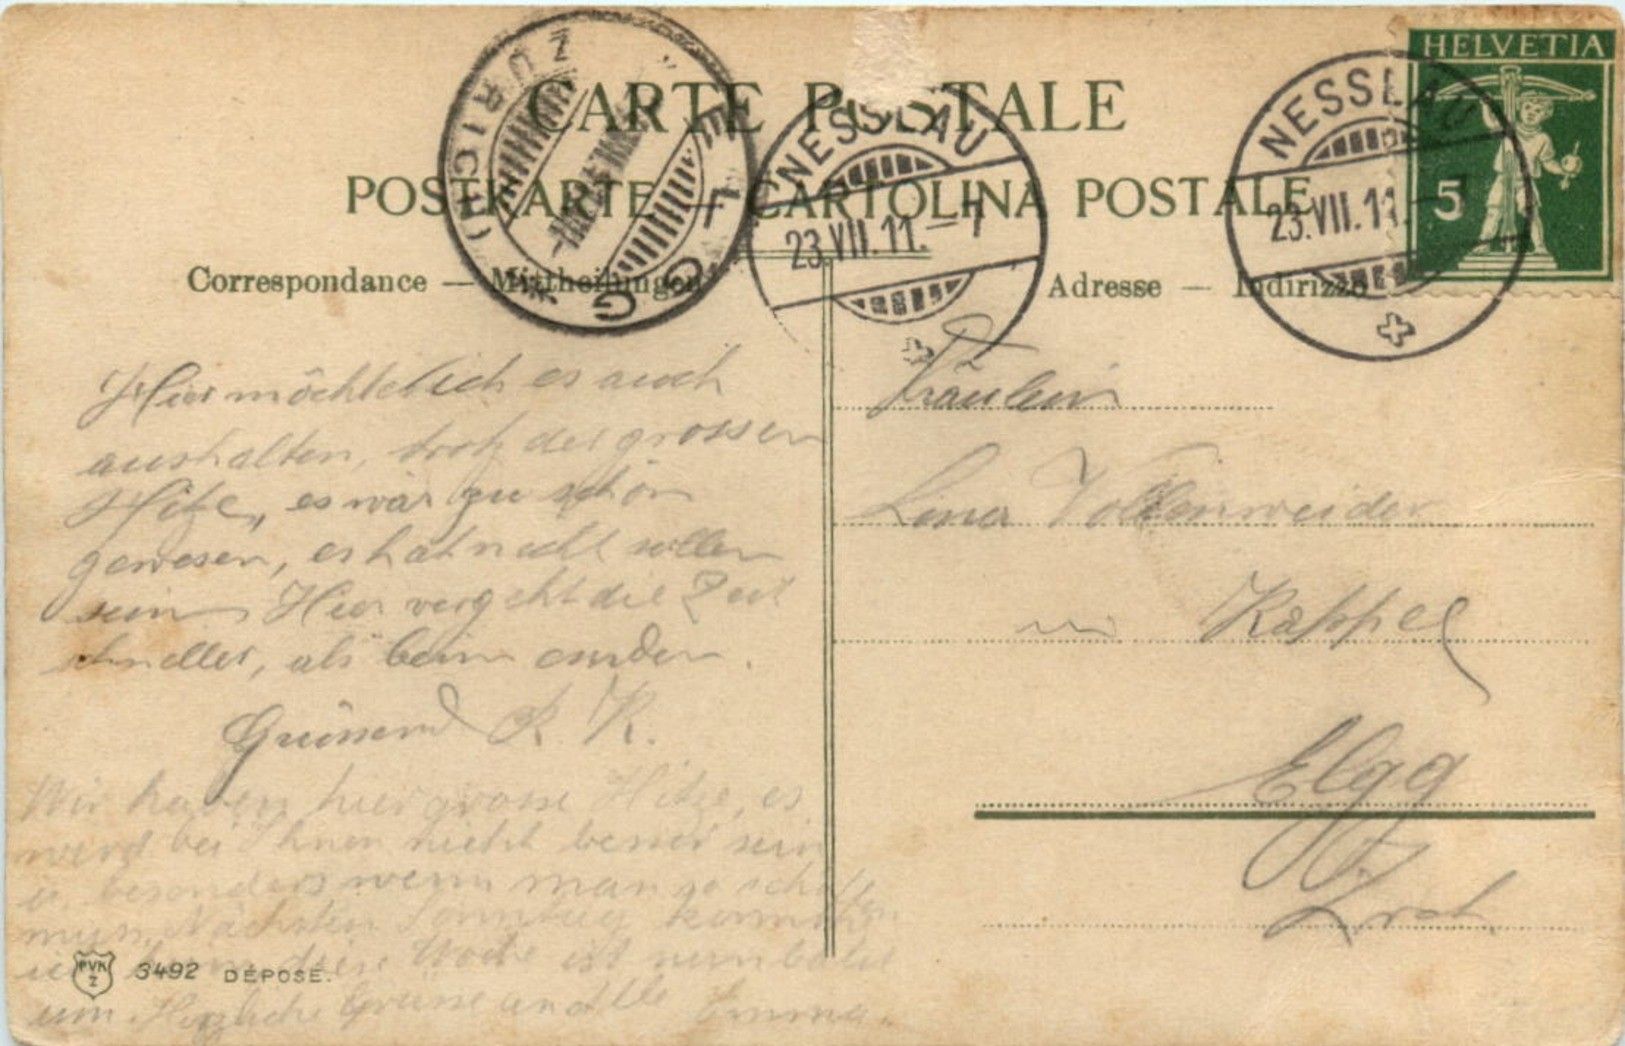 HELVETIA
5
CARTE POSTALE
POSTKARTE — CARTOLINA POSTALE
Correspondance — Mittheilungen
Adresse — Indirizzo
ELGG (ZÜRICH)
NESSLAU
23.VII.11.–7
NESSLAU
23.VII.11.–7
Hier möchte ich es auch
aushalten, trotz der grossen
Hitze, es wär zu schön
gewesen, es hat nicht sollen
sein. Hier vergeht die Zeit
schneller, als beim
Grüssend R. K.
Wir haben hier grosse Hitze, es
wird bei Ihnen nicht besser sein
u. besonders wenn man so schaffen
muss, Nächsten Sonntag
diese Woche ist
um Herzliche Grüsse an Alle Emma.
Fräulein
Lina Vollenweider
in Kappel
Elgg
Zrch
PVK
Z
3492 DÉPOSÉ.